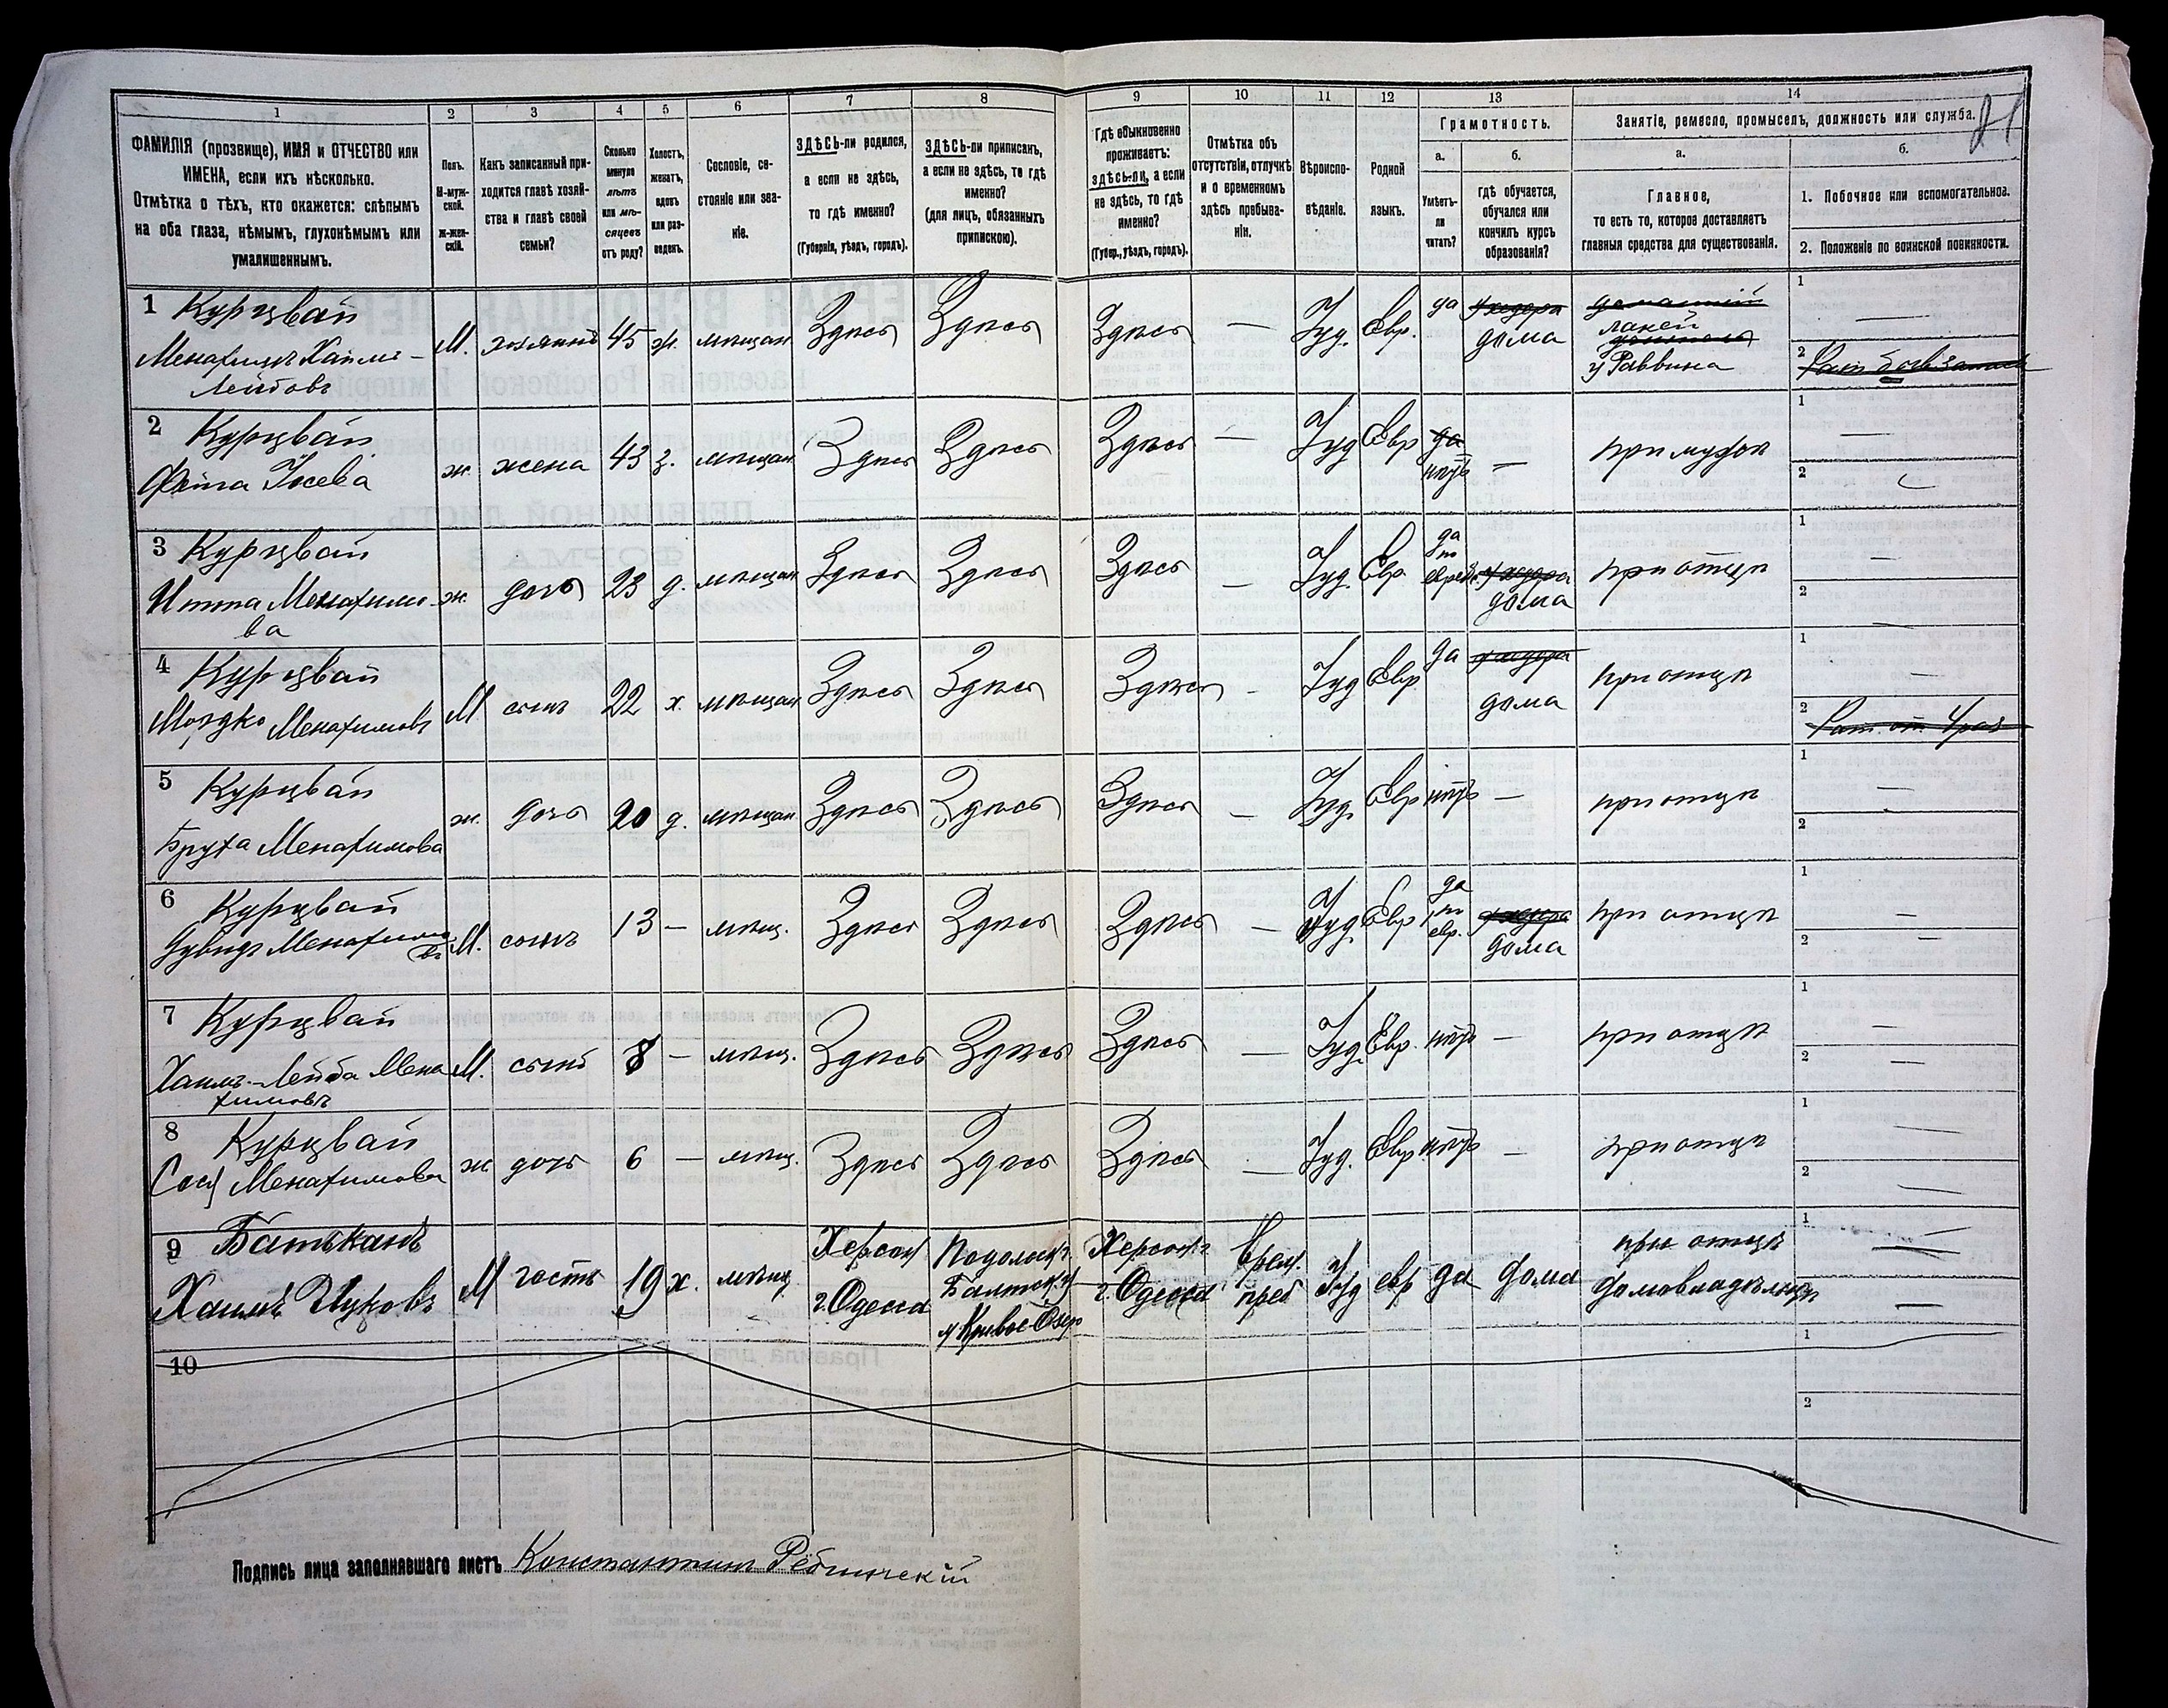 1 2 3 4 5 6 7 8 9 10 11 12 13 14
ФАМИЛІЯ (прозвище), ИМЯ и ОТЧЕСТВО или
ИМЕНА, если ихъ нѣсколько.
Отмѣтка о тѣхъ, кто окажется: слѣпымъ
на оба глаза, нѣмымъ, глухонѣмымъ или
умалишеннымъ.
Полъ.
М-муж-
ской.
ж-жен-
скій.
Какъ записанный при-
ходится главѣ хозяй-
ства и главѣ своей
семьи?
Сколько
минуло
лѣтъ
или мѣ-
сяцевъ
отъ роду?
Холостъ,
женатъ,
вдовъ
или раз-
веденъ.
Сословіе, со-
стояніе или зва-
ніе.
ЗДѢСЬ-ли родился,
а если не здѣсь,
то гдѣ именно?
(Губернія, уѣздъ, городъ).
ЗДѢСЬ-ли приписанъ,
а если не здѣсь, то гдѣ
именно?
(для лицъ, обязанныхъ
припискою).
Гдѣ обыкновенно
проживаетъ:
здѣсь-ли, а если
не здѣсь, то гдѣ
именно?
(Губер., уѣздъ, городъ).
Отмѣтка объ
отсутствіи, отлучкѣ
и о временномъ
здѣсь пребыва-
ніи.
Вѣроиспо-
вѣданіе.
Родной
языкъ.
Грамотность.
а.
Умѣетъ-
ли
читать?
б.
гдѣ обучается,
обучался или
кончилъ курсъ
образованія?
Занятіе, ремесло, промыселъ, должность или служба.
а.
Главное,
то есть то, которое доставляетъ
главныя средства для существованія.
б.
1. Побочное или вспомогательное.
2. Положеніе по воинской повинности.
1 Курцвай
Менахимъ Хаимъ-
Лейбовъ
М. хозяинъ 45 ж. мѣщан. Здѣсь Здѣсь Здѣсь — Іуд. Евр. да у хедера
дома
домашній
лакей
у Раввина
1 —
2
2 Курцвай
Фейга Іосева
ж. жена 43 з. мѣщан. Здѣсь Здѣсь Здѣсь — Іуд Евр да
нѣтъ — при мужѣ
1 —
2
3 Курцвай
Итта Менахимо-
ва
ж. дочь 23 д. мѣщан. Здѣсь Здѣсь Здѣсь — Іуд. Евр. да
по
еврей. у хедера
дома
при отцѣ
1
2
4 Курцвай
Мордко Менахимовъ
М. сынъ 22 х. мѣщан. Здѣсь Здѣсь Здѣсь - Іуд Евр да у хедера
дома
при отцѣ
1 —
2
5 Курцвай
Бруха Менахимова
ж. дочь 20 д. мѣщан. Здѣсь Здѣсь Здѣсь — Іуд. Евр нѣтъ — при отцѣ
1 —
2
6 Курцвай
Дувидъ Менахимо
въ
М. сынъ 13 — мѣщ. Здѣсь Здѣсь Здѣсь — Іуд. Евр да
по
евр. у хедера
дома
при отцѣ
1 —
2 —
7 Курцвай
Хаимъ-Лейба Мена
химовъ
М. сынъ 8 — мѣщ. Здѣсь Здѣсь Здѣсь — Іуд. Евр. нѣтъ — при отцѣ
1 —
2 —
8 Курцвай
Сося Менахимова
ж дочь 6 — мѣщ. Здѣсь Здѣсь Здѣсь — Іуд. Евр нѣтъ — при отцѣ
1 —
2 —
9 Батьканъ
Хаимъ Ицковъ
М гость 19 х. мѣщ. Херсон
г. Одесса
Подольск г.
Балтск у
м Кривое Озеро
Херсон г.
г. Одесса
Врем.
преб
Іуд евр да дома
при отцѣ
домовладѣльцѣ
1 —
—
10
1
2
Подпись лица заполнявшаго листъ Константинъ